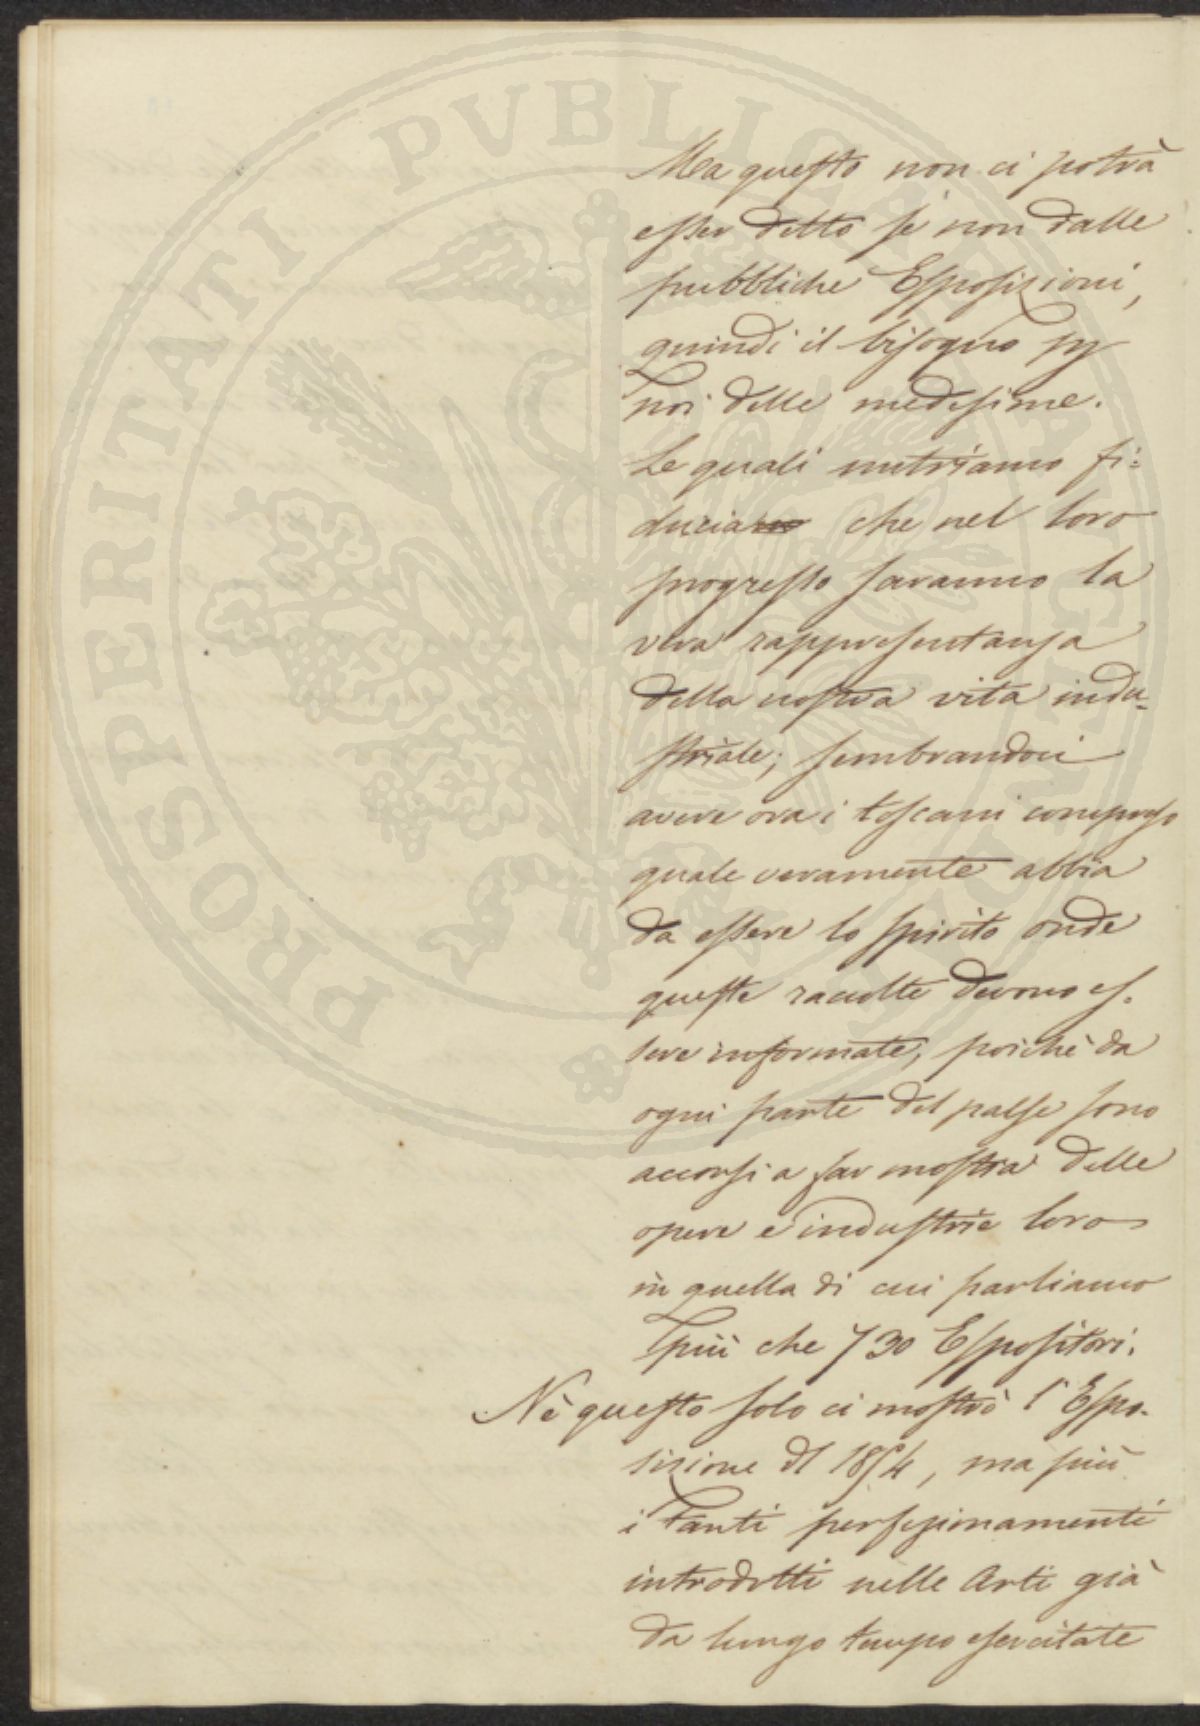 Ma questo non ci potrà
esser detto se non dalle
pubbliche Esposizioni,
quindi il bisogno p
noi delle medesime.
Le quali nutriamo fi:
ducia che nel loro
progresso saranno la
vera rappresentanza
della nostra vita indu-
striale; sembrandoci
avere ora i toscani compreso
quale veramente abbia
da essere lo spirito onde
queste raccolte devono es-
sere informate, poichè da
ogni parte del paese sono
accorsi a far mostra delle
opere e industrie loro
in quella di cui parliamo
più che 730 Espositori.
Nè questo solo ci mostrò l'Espo-
sizione del 1854, ma più
i tanti perfezionamenti
introdotti nelle Arti già
da lungo tempo esercitate
PROSPERITATI PUBLICAE AUGENDAE